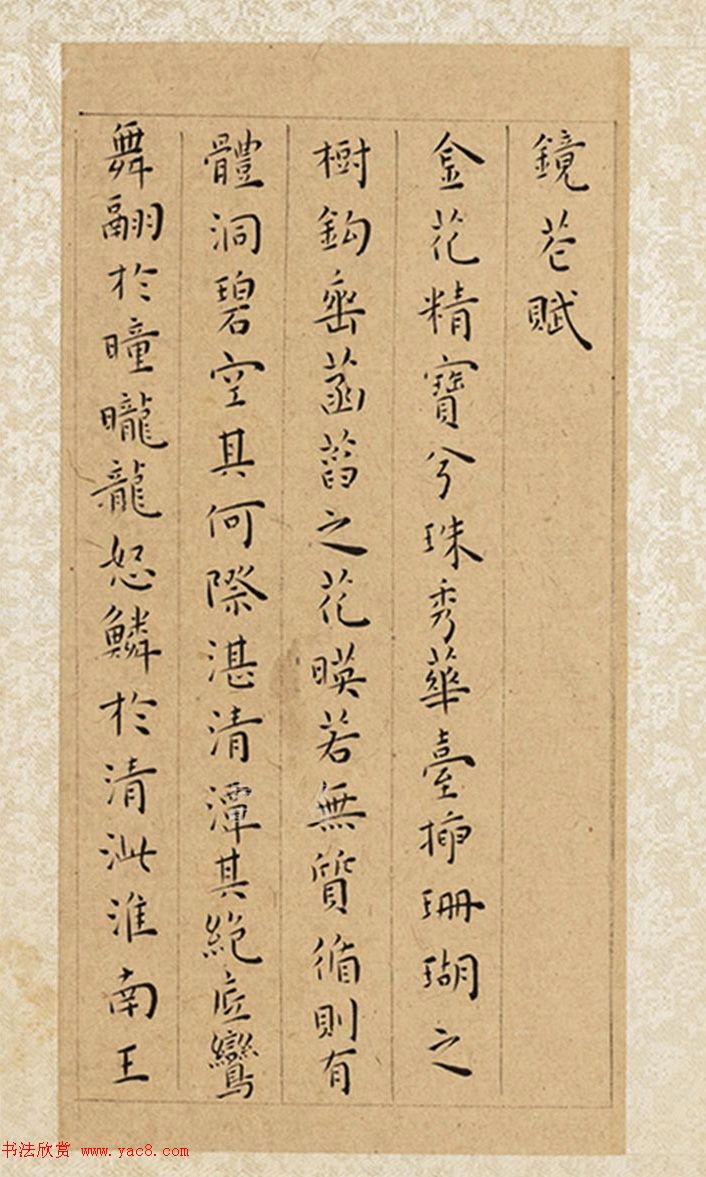 鏡花賦
金花精寶兮珠秀華臺抽珊瑚之
樹鈎垂菡萏之花暎若無質循則有
體洞碧空其何際湛清潭其絶底鸞
舞翮於曈曨龍怒鱗於清泚淮南王
书法欣赏 www.yac8.com